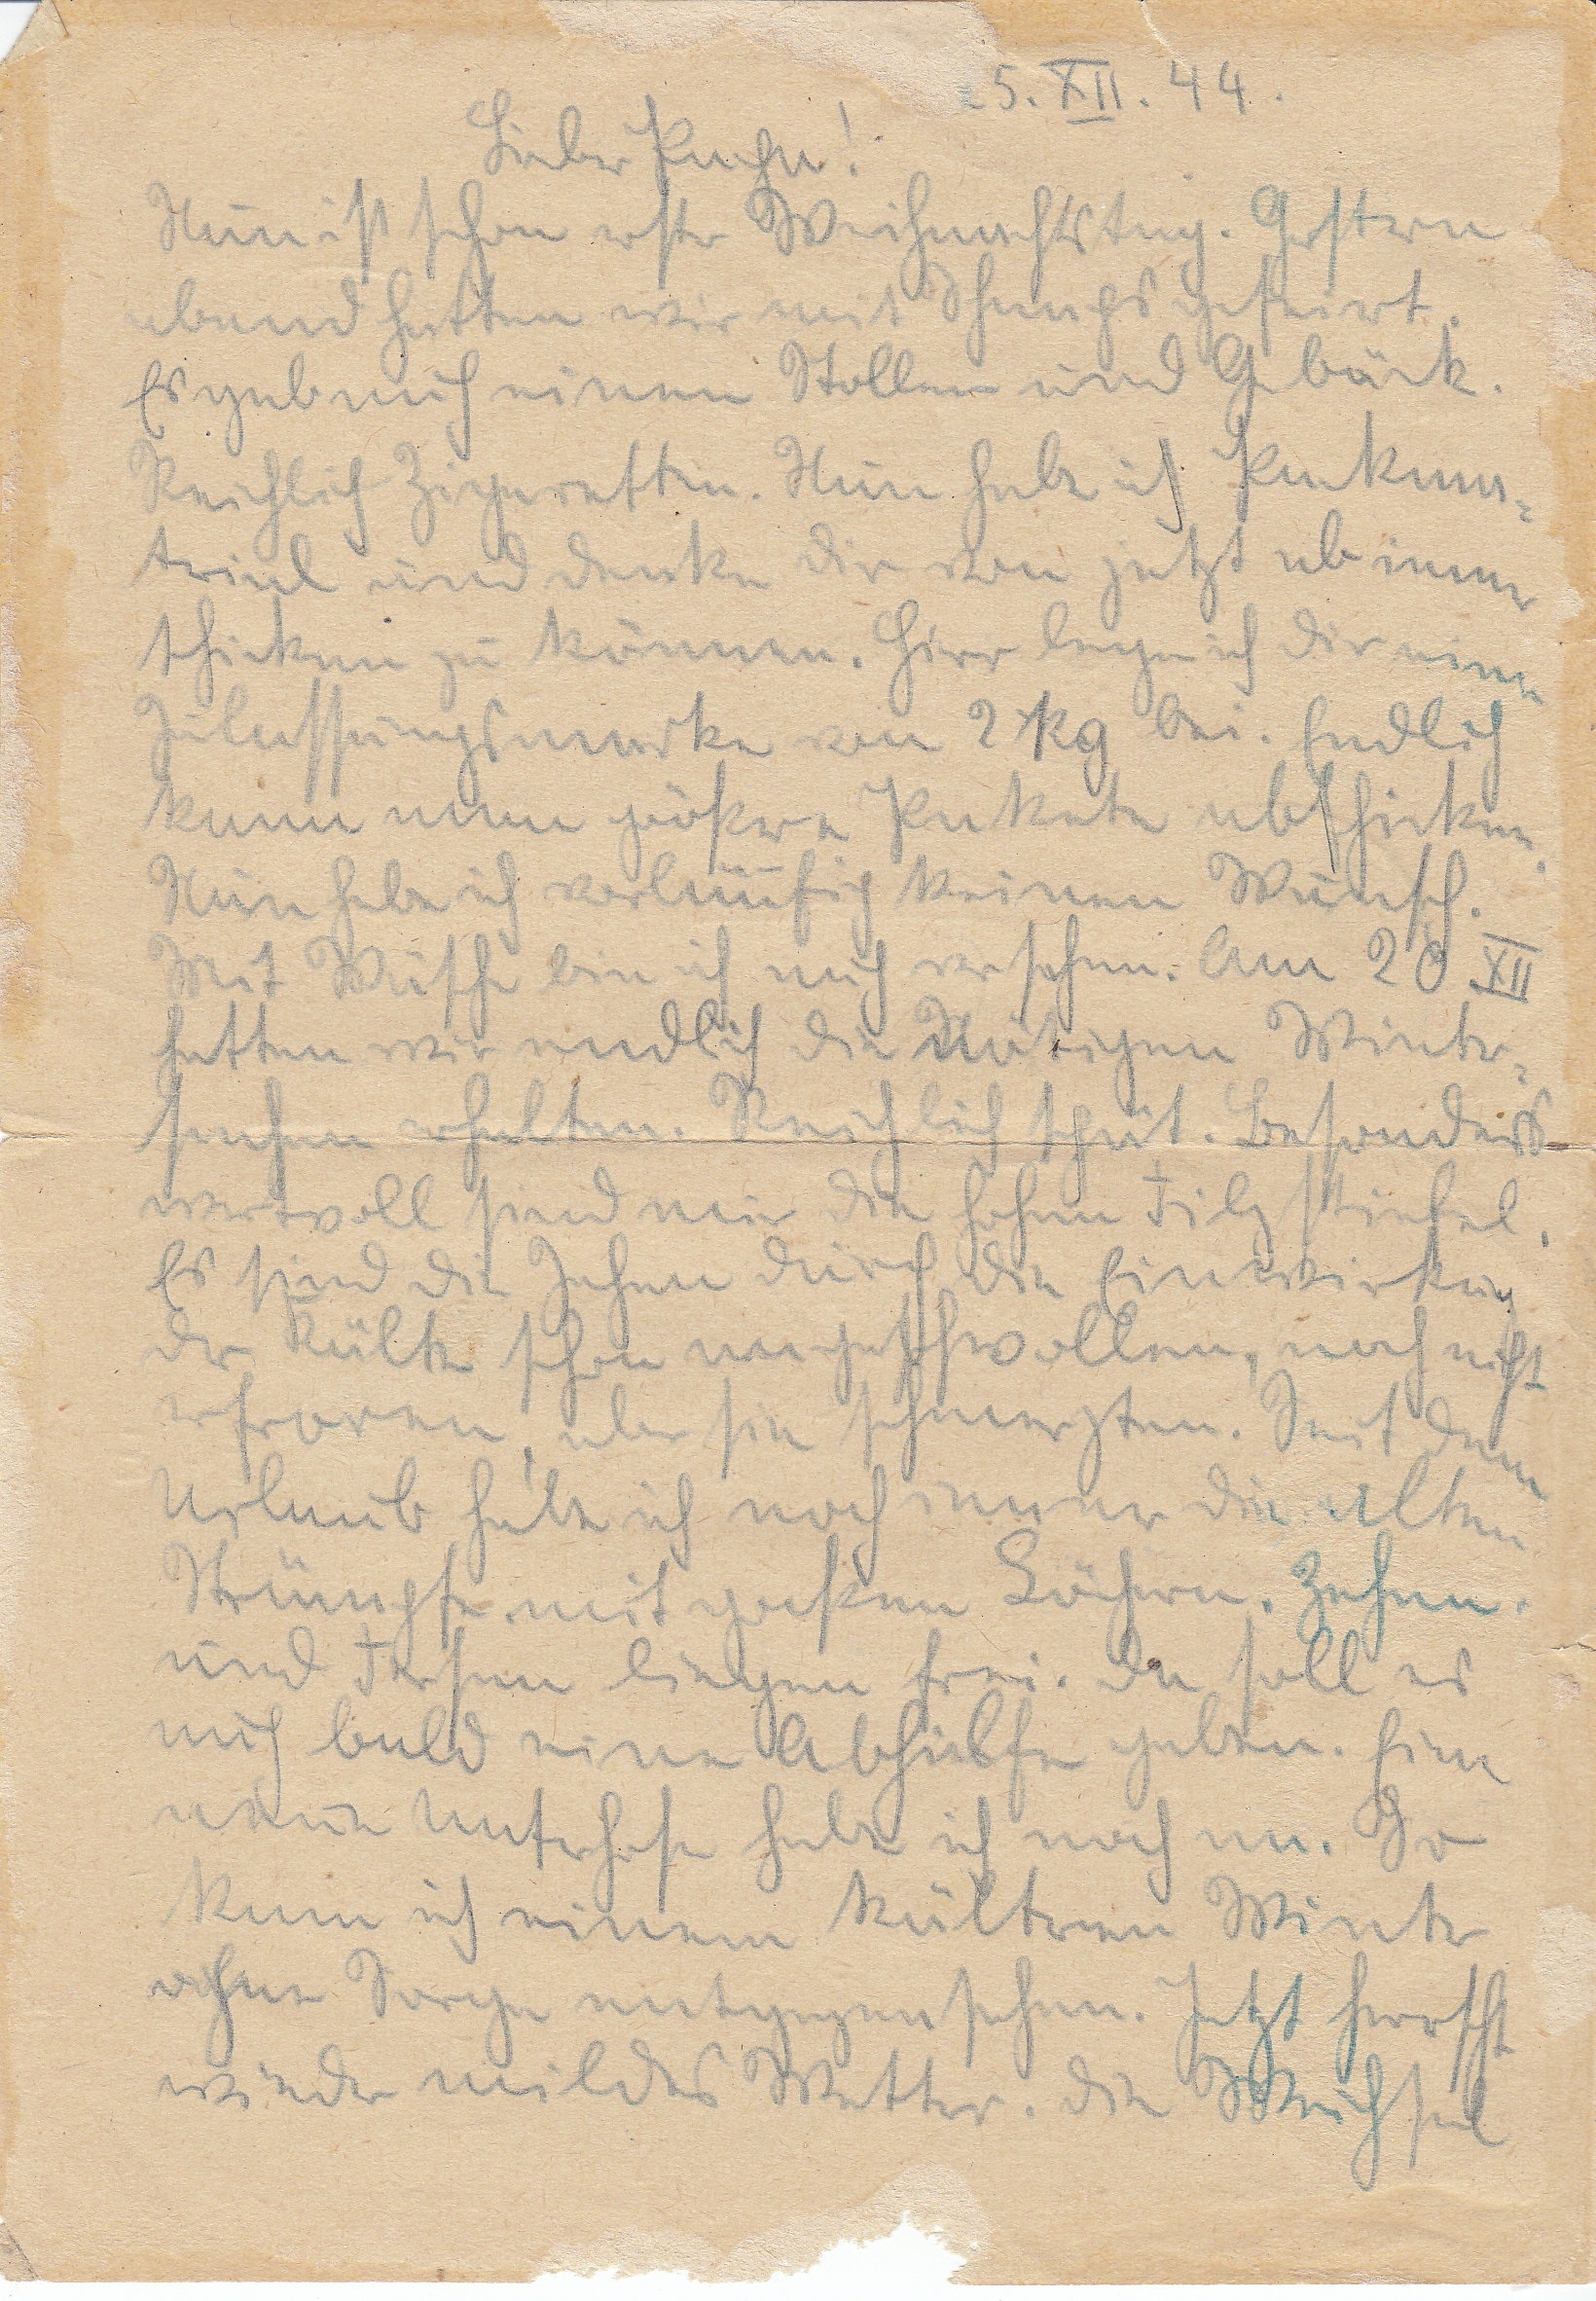 25. XII. 44.
Lieber Papa!
Nun ist schon erster Weihnachtstag. Gestern
abend hatten wir mit Schnaps gefeiert.
Es gab auch einen Stollen und Gebäck.
Reichlich Zigaretten. Nun habe ich Pakma-
terial und denke dir von jetzt ab immer
schicken zu können. Hier lege ich dir eine
Zulassungsmarke von 2 kg bei. Endlich
kann man größere Pakete abschicken.
Nun habe ich vorläufig keinen Wunsch.
Mit Wäsche bin ich auch versehen. Am 20 XII
hatten wir endlich die Nötigen Winter-
sachen erhalten. Reichlich spät. Besonders
wertvoll sind mir die hohen Filzstiefel.
Es sind die Zehen durch die Einwirkung
der Kälte schon angeschwollen, noch nicht
erfroren, aber sie schmerzten. Seit dem
Urlaub habe ich noch immer die alten
Strümpfe mit großen Löchern. Zehen
und Fersen liegen frei. Da soll es
auch bald eine Abhülfe geben. Eine
neue Unterhose habe ich noch an. So
kann ich einem kälteren Winter
ohne Sorge entgegensehen. Jetzt herrscht
wieder mildes Wetter. Die Weichsel